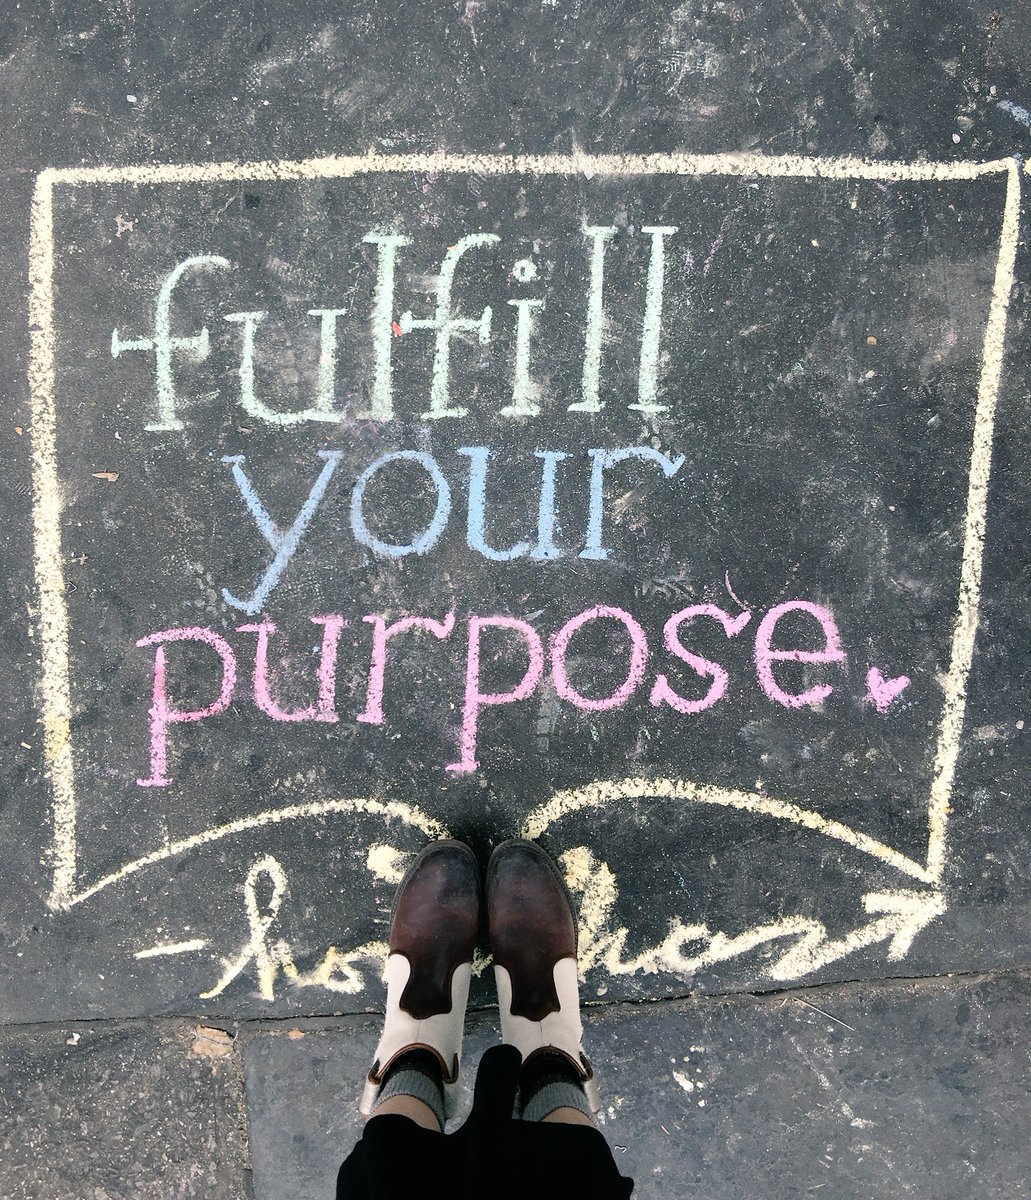 fulfill
your
purpose.